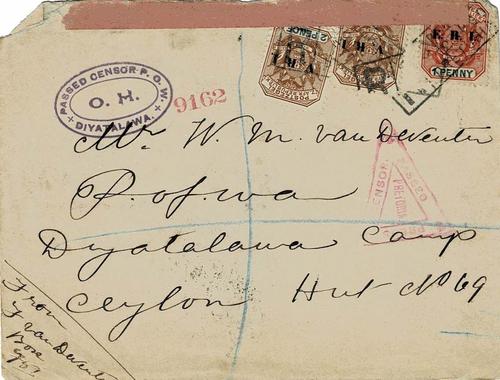 2 PENCE
V.R.I.
V.R.I.
E.R.I.
1 PENNY
PASSED CENSOR P.O.W.
O. H.
DIYATALAWA.
9162
Mr W. M. van Deventer
P. of war
Diyatalawa Camp
Ceylon Hut No 69
PASSED
CENSOR
PRETORIA
From
van Deventer
Box